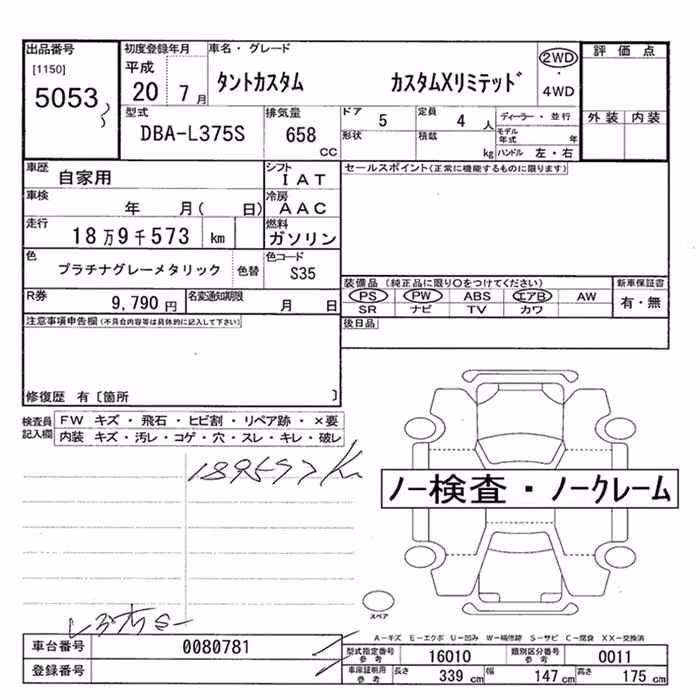 出品番号
[1150]
5053
初度登録年月
平成
20 7 月
車名・グレード
タントカスタム カスタムXリミテッド
2WD
・
4WD
評価点
外装 内装
型式
DBA-L375S
排気量
658
CC
ドア 5
形状
定員 4 人
積載 kg
ディーラー・並行
モデル年式 年
ハンドル 左・右
車歴
自家用
シフト
IAT
車検
年 月( 日)
冷房
AAC
走行
18万9千573 km
燃料
ガソリン
色
プラチナグレーメタリック 色替
色コード
S35
R券
9,790 円
名変通知期限
月 日
セールスポイント(正常に機能するものに限ります)
装備品 (純正品に限り○をつけてください)
PS PW ABS エアB AW
SR ナビ TV カワ
新車保証書
有・無
後日品
注意事項申告欄(不具合内容等は具体的に記入して下さい)
修復歴 有 [箇所 ]
検査員
記入欄
FW キズ・飛石・ヒビ割・リペア跡・×要
内装 キズ・汚レ・コゲ・穴・スレ・キレ・破レ
ノー検査・ノークレーム
スペア
A-キズ E-エクボ U-凹み W-補修跡 S-サビ C-腐食 XX-交換済
車台番号 0080781
登録番号
型式指定番号
参考
16010
類別区分番号
参考
0011
車庫証明用
参考
長さ 339 cm
幅 147 cm
高さ 175 cm